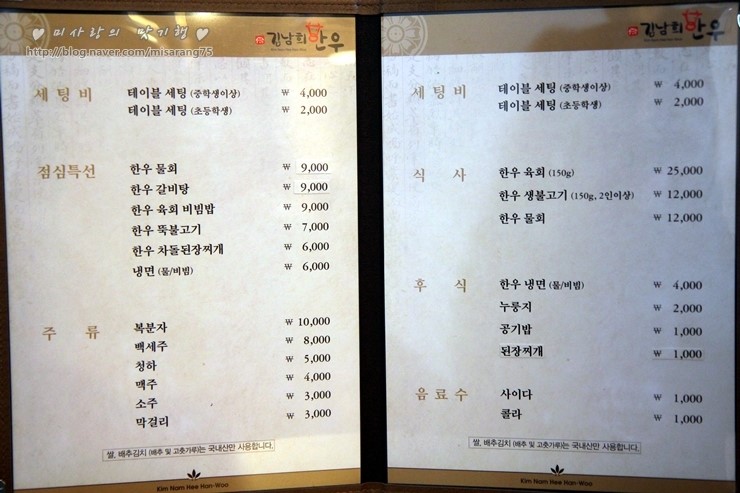 ♥ 미사랑의 맛기행 ♥
http://blog.naver.com/misarang75
김남희 한우
세팅비
테이블 세팅 (중학생이상) ₩ 4,000
테이블 세팅 (초등학생) ₩ 2,000
점심특선
한우 물회 ₩ 9,000
한우 갈비탕 ₩ 9,000
한우 육회 비빔밥 ₩ 9,000
한우 뚝불고기 ₩ 7,000
한우 차돌된장찌개 ₩ 6,000
냉면 (물/비빔) ₩ 6,000
주류
복분자 ₩ 10,000
백세주 ₩ 8,000
청하 ₩ 5,000
맥주 ₩ 4,000
소주 ₩ 3,000
막걸리 ₩ 3,000
쌀, 배추김치 (배추 및 고춧가루)는 국내산만 사용합니다.
Kim Nam Hee Han-Woo
김남희 한우
세팅비
테이블 세팅 (중학생이상) ₩ 4,000
테이블 세팅 (초등학생) ₩ 2,000
식사
한우 육회 (150g) ₩ 25,000
한우 생불고기 (150g, 2인이상) ₩ 12,000
한우 물회 ₩ 12,000
후식
한우 냉면 (물/비빔) ₩ 4,000
누룽지 ₩ 2,000
공기밥 ₩ 1,000
된장찌개 ₩ 1,000
음료수
사이다 ₩ 1,000
콜라 ₩ 1,000
쌀, 배추김치 (배추 및 고춧가루)는 국내산만 사용합니다.
Kim Nam Hee Han-Woo